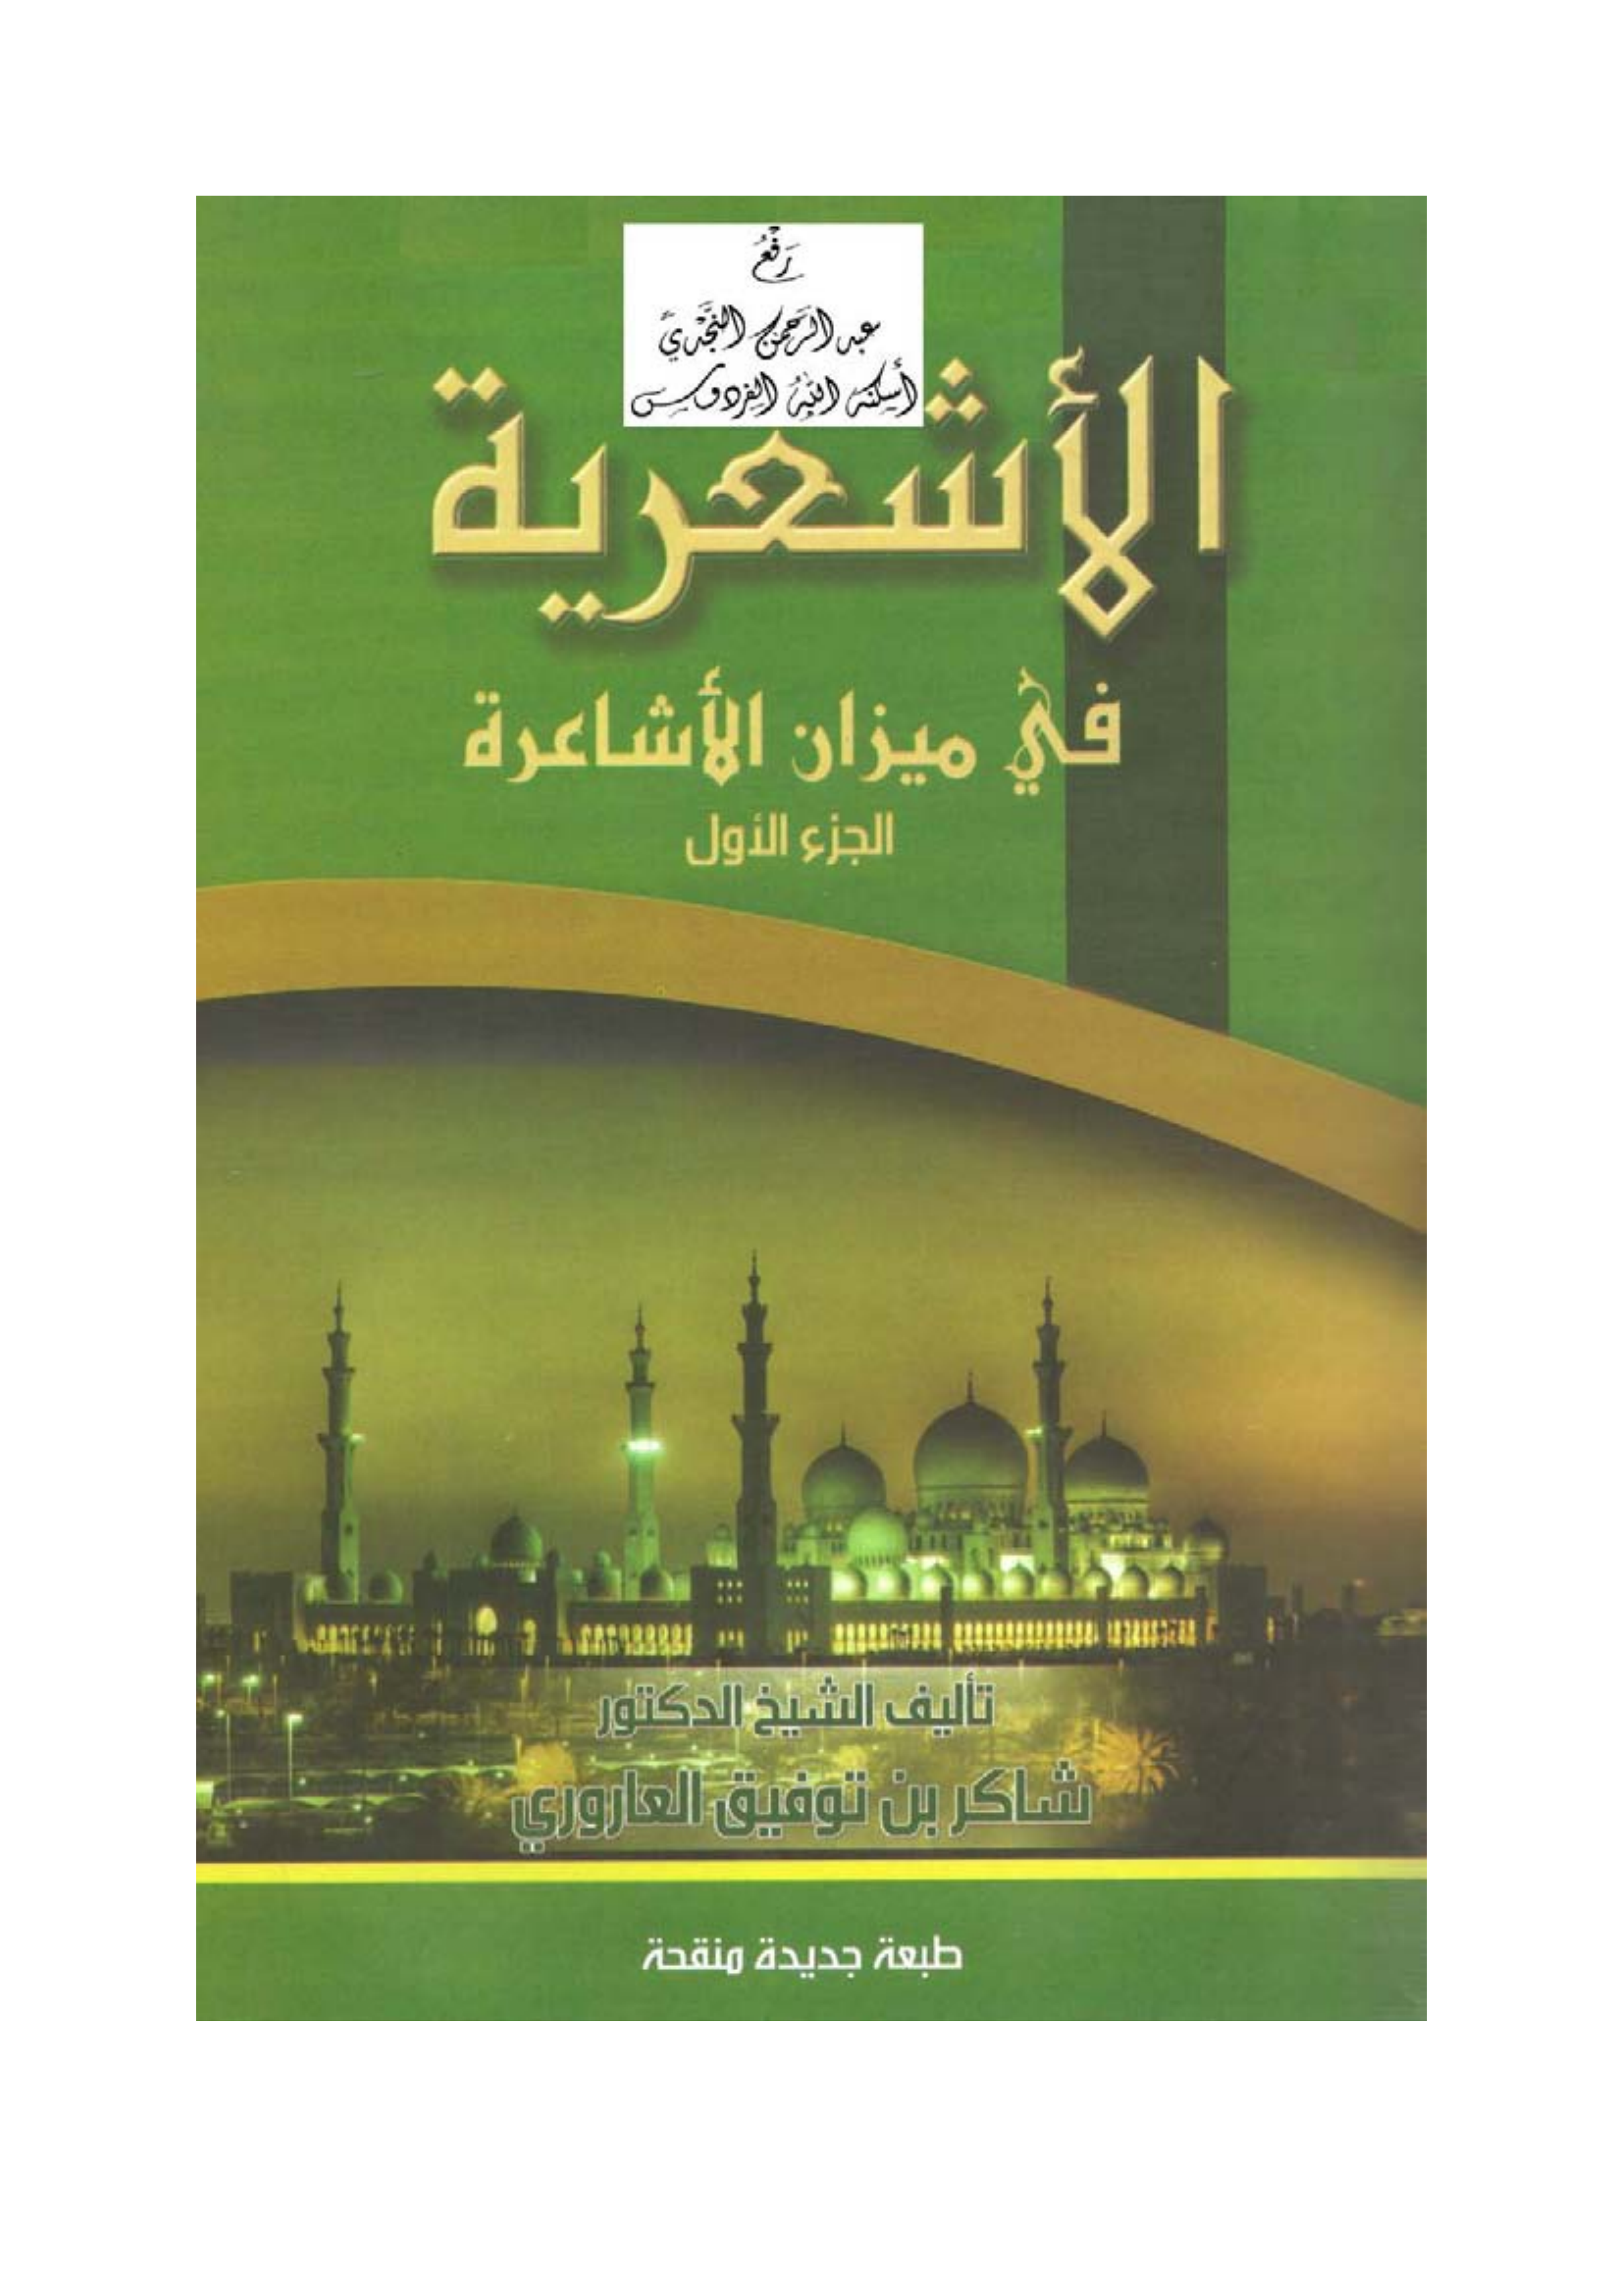 رَفْعُ
عبد الرَّحمن النَّجْديّ
أسكنه اللهُ الفردوس
الأشعرية
في ميزان الأشاعرة
الجزء الأول
تأليف الشيخ الدكتور
شاكر بن توفيق العاروري
طبعة جديدة منقحة